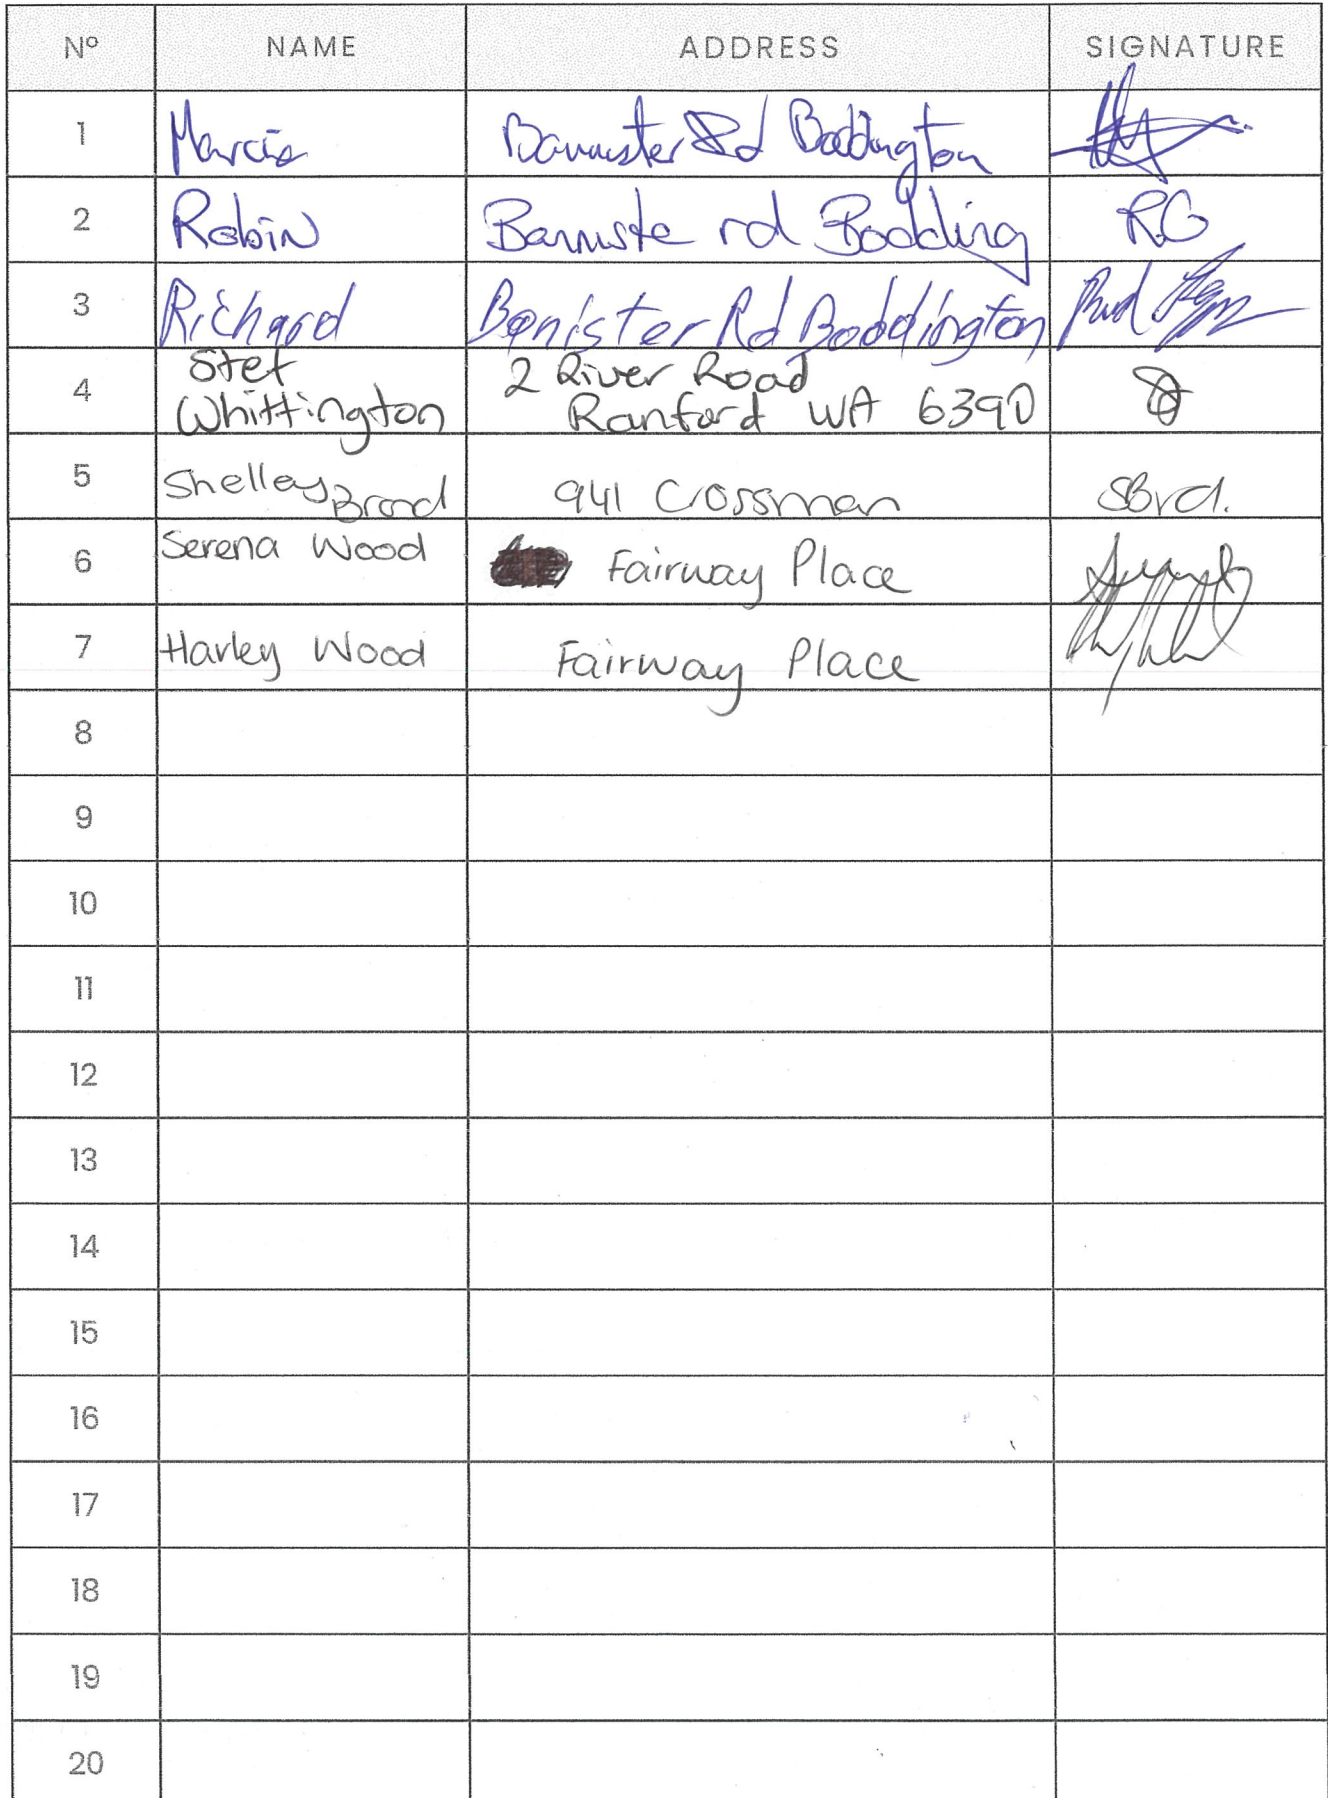 Nº NAME ADDRESS SIGNATURE
1 Marcia Bannister Rd Boddington
2 Robin Banniste rd Bodding RG
3 Richard Banister Rd Boddington
4 Stef Whittington 2 River Road Ranford WA 6390
5 Shelley Brand 941 Crossman SBrd.
6 Serena Wood Fairway Place
7 Harley Wood Fairway Place
8
9
10
11
12
13
14
15
16
17
18
19
20